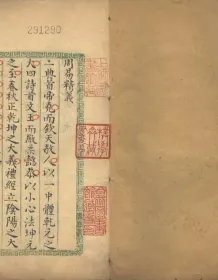 291290
周易精義
二典首帝堯而欽天敬人以一中體乾元之
大四詩首文王而厥柔懿恭以小心法坤元
之至春秋正乾坤之大義禮經立陰陽之大